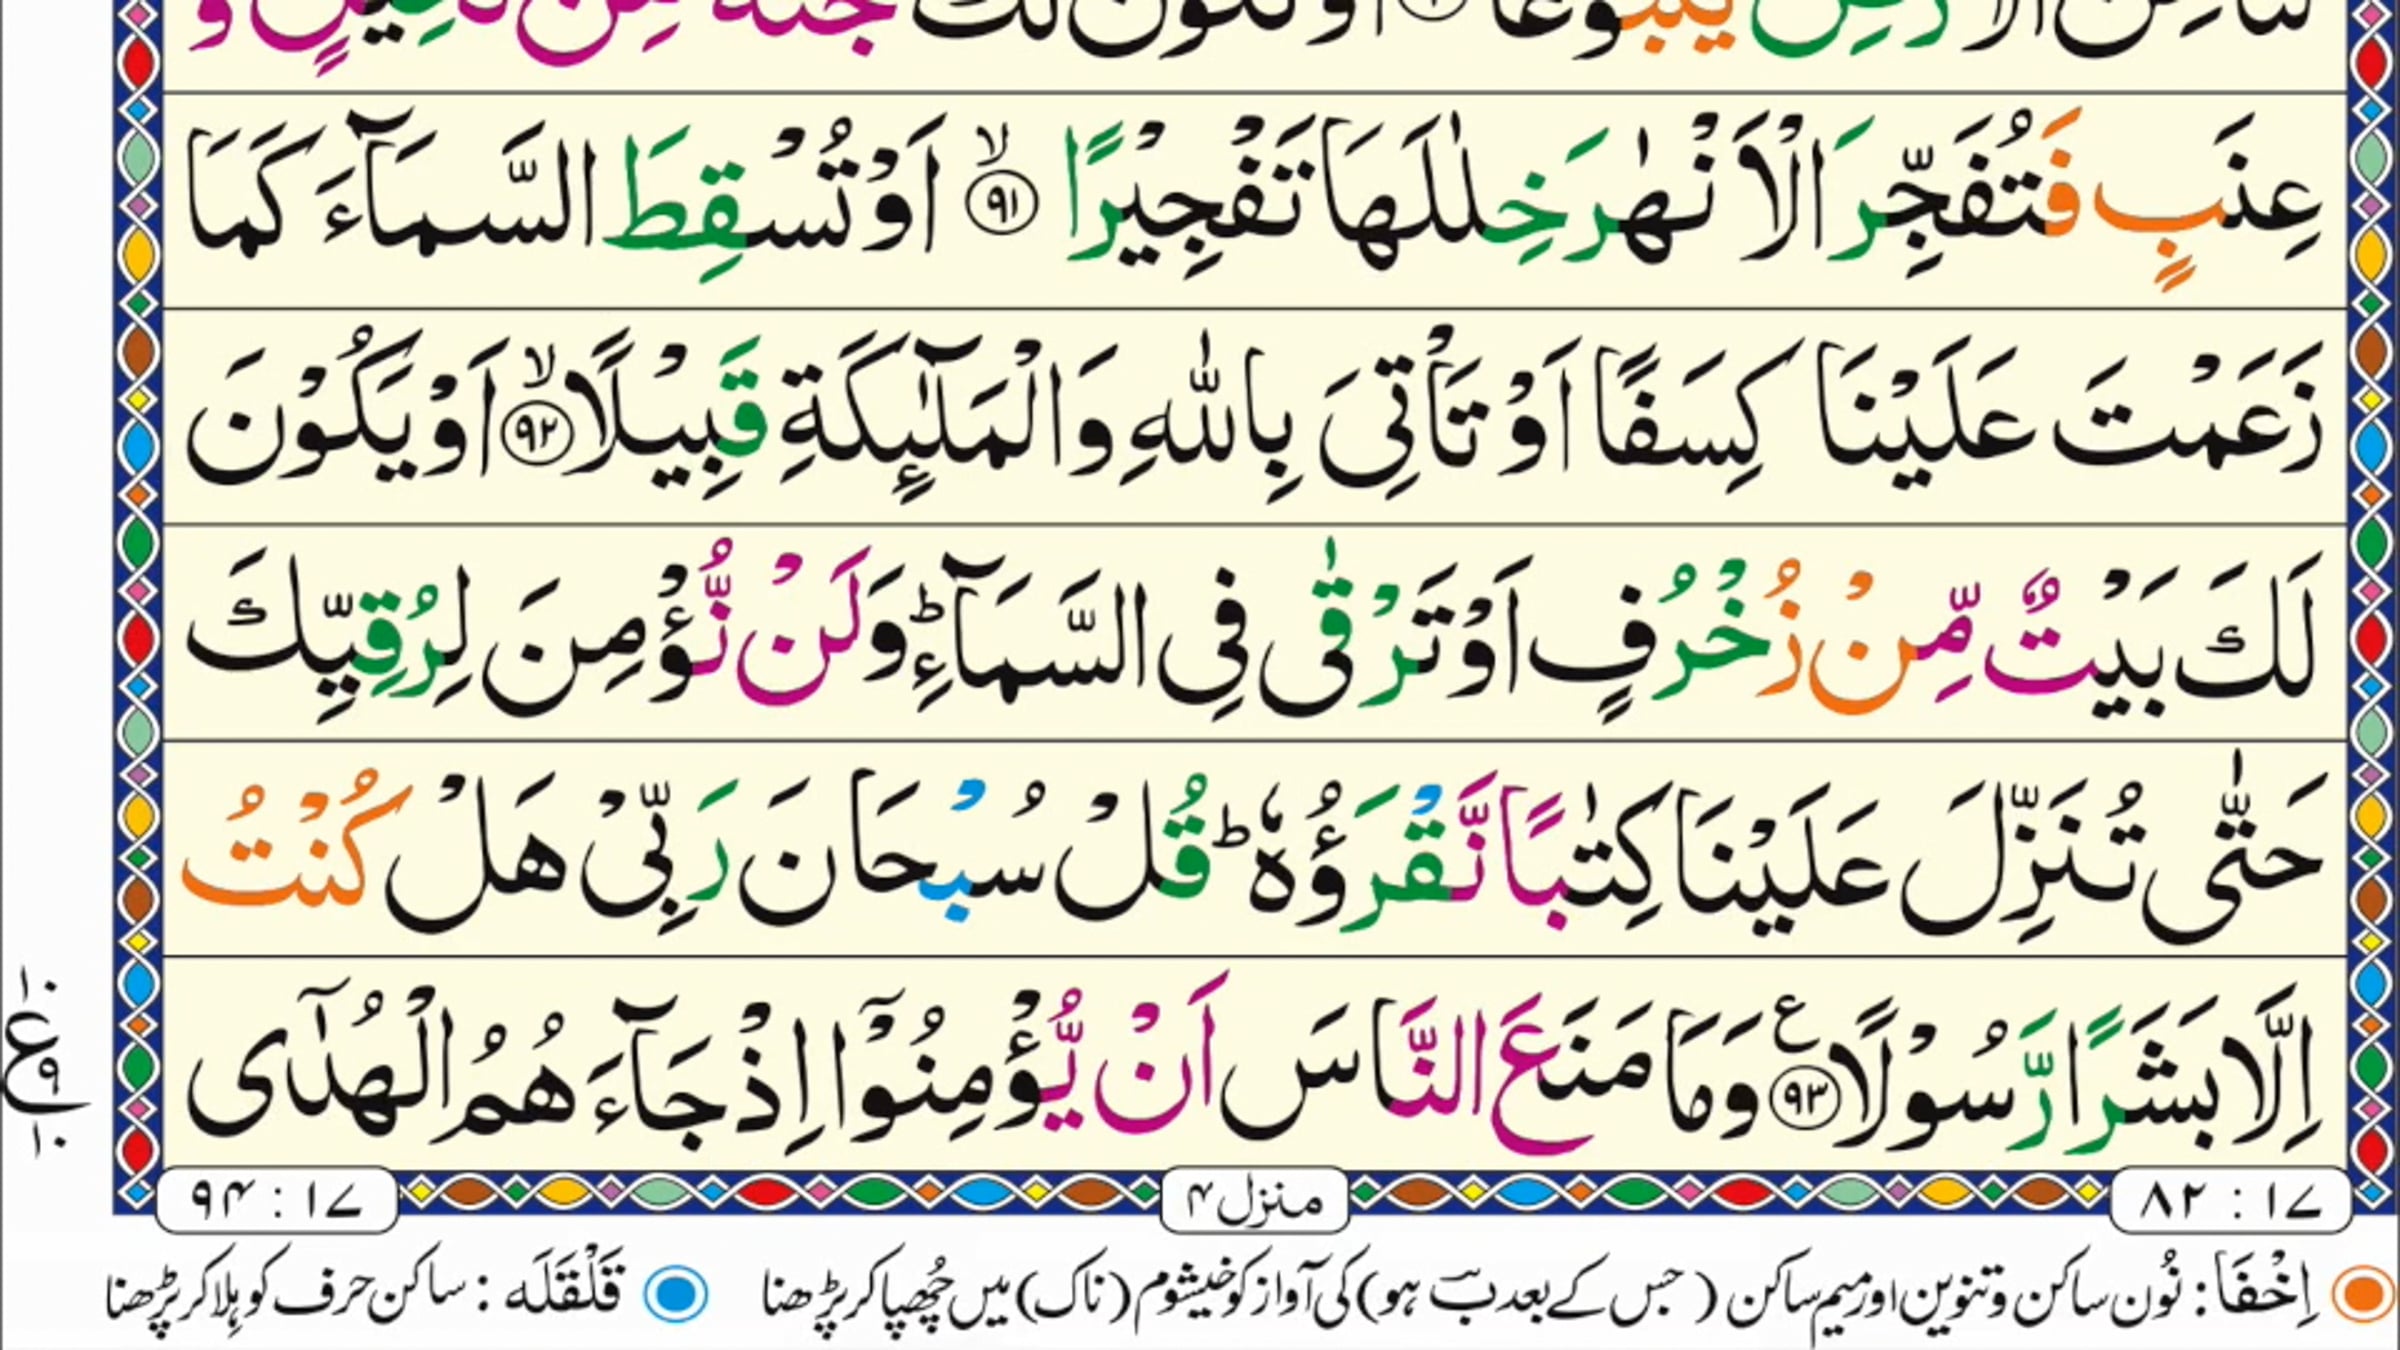 لَنَا مِنَ الْاَرْضِ يَنْۢبُوْعًا ۙ اَوْ تَكُوْنَ لَكَ جَنَّةٌ مِّنْ نَّخِيْلٍ وَّ
عِنَبٍ فَتُفَجِّرَ الْاَنْهٰرَ خِلٰلَهَا تَفْجِيْرًا ۙ‏﴿۹۱﴾ اَوْ تُسْقِطَ السَّمَآءَ كَمَا
زَعَمْتَ عَلَيْنَا كِسَفًا اَوْ تَاْتِیَ بِاللّٰهِ وَالْمَلٰٓئِكَةِ قَبِيْلًا ۙ‏﴿۹۲﴾ اَوْ يَكُوْنَ
لَكَ بَيْتٌ مِّنْ زُخْرُفٍ اَوْ تَرْقٰى فِی السَّمَآءِ ؕ وَلَنْ نُّؤْمِنَ لِرُقِيِّكَ
حَتّٰى تُنَزِّلَ عَلَيْنَا كِتٰبًا نَّقْرَؤُهٗ ؕ قُلْ سُبْحَانَ رَبِّیْ هَلْ كُنْتُ
اِلَّا بَشَرًا رَّسُوْلًا ﴿۹۳﴾ ع وَمَا مَنَعَ النَّاسَ اَنْ يُّؤْمِنُوْۤا اِذْ جَآءَهُمُ الْهُدٰٓى
۱۰ ع ۹ ۱۰
۱۷ : ۸۲ منزل ۴ ۱۷ : ۹۴
اِخْفَا: نُون ساکن و تنوین اور میم ساکن (جس کے بعد ب ہو) کی آواز کو خیشوم (ناک) میں چُھپا کر پڑھنا قَلْقَلَه: ساکن حرف کو ہِلا کر پڑھنا